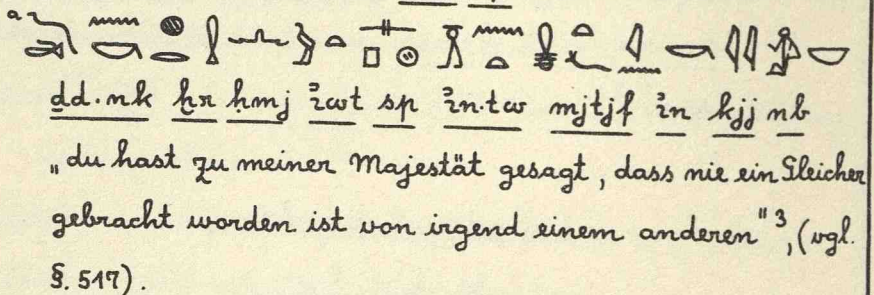 a
ḏd.nk ḫr ḥmj ỉwt sp ỉn.tw mjtjf ỉn kjj nb
„du hast zu meiner Majestät gesagt, dass nie ein Gleicher
gebracht worden ist von irgend einem anderen" 3, (vgl.
§. 517).